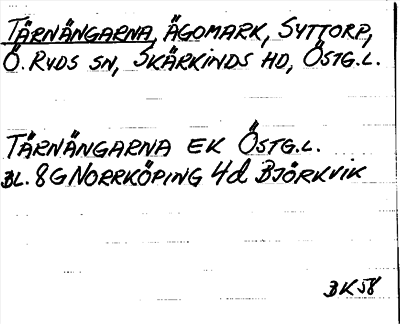 TÄRNÄNGARNA, ÄGOMARK, SYTTORP,
Ö. RYDS SN, SKÄRKINDS HD, ÖSTG.L.
TÄRNÄNGARNA EK ÖSTG.L.
BL. 8G NORRKÖPING 4d BJÖRKVIK
BK58